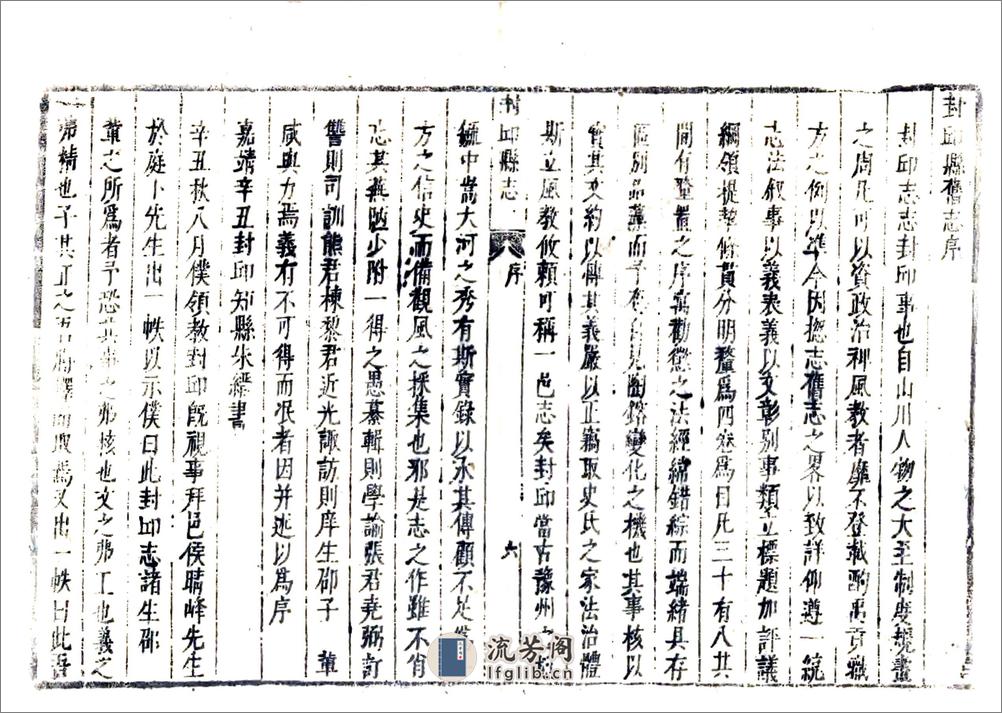 封邱縣舊志序
封邱志志封邱事也自山川人物之大至制度規畫
之周凡可以資政治裨風教者靡不登載酌禹貢職
方之例以準今因撫志舊志之畧以致詳仰遵一統
志法叙事以義表義以文彰別事類立標題加評議
綱領提挈條貫分明釐爲四卷爲目凡三十有八其
間有登耆之序寓勸懲之法經緯錯綜而端緒具存
區別品彙而予奪自見陶鎔變化之機也其事核以
實其文約以傳其義嚴以正竊取史氏之家法治體
斯立風教攸賴可稱一邑志矣封邱當古豫州之
封邱縣志
序
六
中嵩大河之秀有斯實錄以永其傳顧不足
方之信史而備觀風之採集也邪是志之作雖不肖
志其蕪陋少附一得之愚纂輯則學諭張君堯弼訂
讐則司訓熊君棟黎君近光諏訪則庠生邵子 輩
咸與力焉義有不可得而泯者因并述以爲序
嘉靖辛丑封邱知縣朱縉書
辛丑秋八月僕領教封邱旣視事拜邑侯晴峰先生
於庭卜先生出一帙以示僕曰此封邱志諸生邵
輩之所爲者予恐其事之弗核也文之弗工也義之
弗精也子其訂之 焉又出一帙曰此吾
流芳閣
lfglib.cn